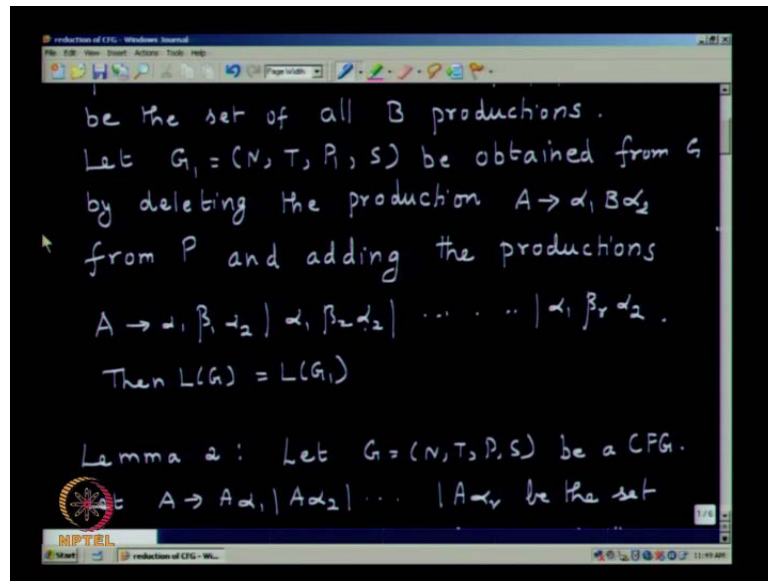 reduction of CFG - Windows Journal
File Edit View Insert Actions Tools Help
Page Width
be the set of all B productions.
Let G₁ = (N, T, P₁, S) be obtained from G
by deleting the production A → α₁ B α₂
from P and adding the productions
A → α₁ β₁ α₂ | α₁ β₂ α₂ | ...... | α₁ βᵣ α₂ .
Then L(G) = L(G₁)
Lemma 2 : Let G = (N, T, P, S) be a CFG.
A → Aα₁ | Aα₂ | ... | Aαᵣ be the set
1/6
NPTEL
Start reduction of CFG - Wi... 11:49 AM